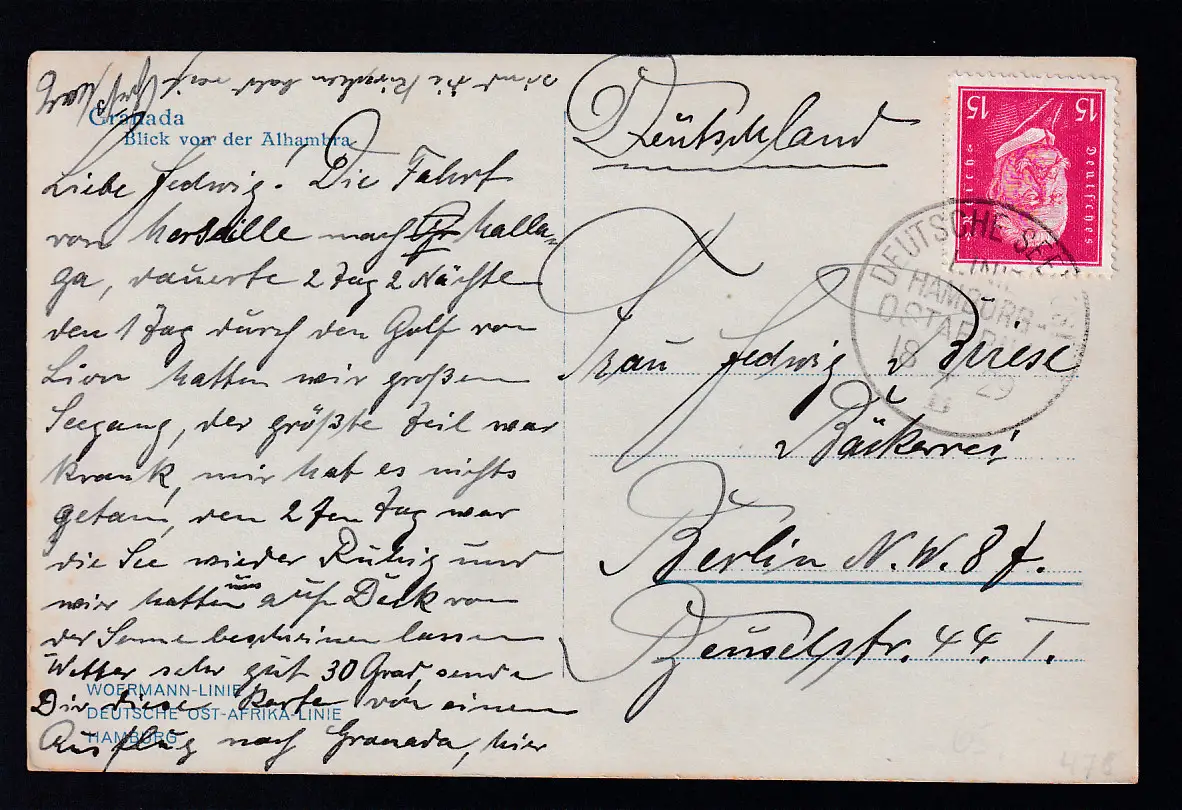 Granada
Blick von der Alhambra
Liebe Hedwig! Die Fahrt
von Merseille nach Malla-
ga, dauerte 2 Tag 2 Nächte
den 1 Tag durch den Golf von
Lion hatten wir großen
Seegang, der größte Teil war
krank, mir hat es nichts
getan, den 2ten Tag war
die See wieder Ruhig und
wir hatten uns auf Deck von
der Sonne bescheinen lassen
Wetter sehr gut 30 Grad, sende
Dir diese Karte von einem
Ausflug nach Granada, hier
sind die Kirschen bald reif
WOERMANN-LINIE
DEUTSCHE OST-AFRIKA-LINIE
HAMBURG
Deutschland
15 15
Deutsches Reich
DEUTSCHE SEEPOST
LINIE
HAMBURG-
OSTAFRIKA
18 29
Frau Hedwig
Bäckerei
Berlin N.W. 87.
44. I.
478